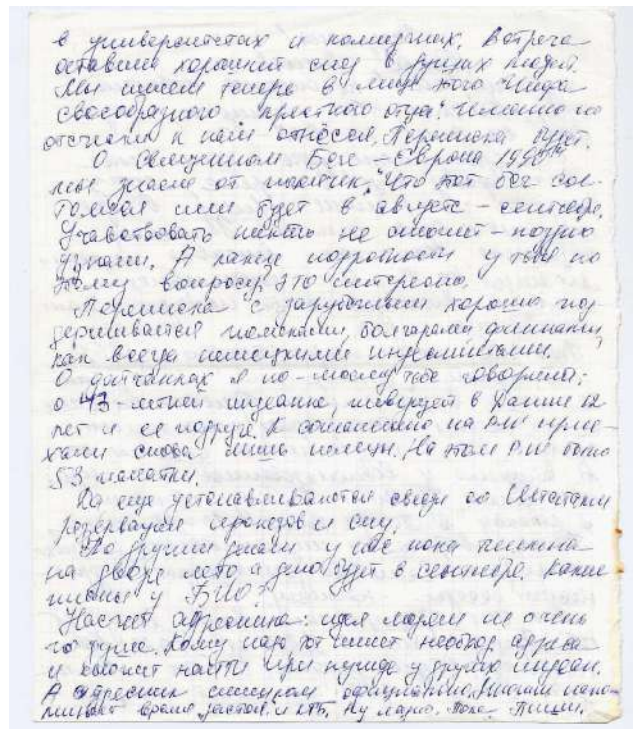 в университетах и колледжах. Встреча
оставила хороший след в душах людей.
Мы имеем теперь в лице этого Чифа
своеобразного "крестного отца".
отсчёт к нам относя. Переписка будет.
О Священном Беге – Европа 1990
мы знаем от поляков. Что этот бег сос-
тоялся или будет в августе – сентябре.
Участвовать никто не сможет – поздно
узнали. А какие подробности у тебя по
этому вопросу? Это интересно.
Переписка с зарубежьем хорошо под
держивается поляками, болгарами, финнами,
как всегда немецкими индеанистами.
О датчанках я по-моему тебе говорила:
о 43-летней индеанке, живущей в Дании 12
лет и ее подруге. К сожалению на Пау прие-
хали снова лишь немцы. На этом Пау было
53 палатки.
Да еще устанавливаются связи со Штатами
резервация ирокезов и сиу.
По другим делам у нас пока тишина
на дворе лето, а дело будет в сентябре. Какие
планы у БИО?
Насчет адресника: идея людям не очень
по душе. Кому надо, тот имеет необход. адреса
и сможет найти при нужде у других индеан.
А адресник слишком официально. Многим напо-
минает время застоя и КГБ. Ну ладно. Пока. Пиши.